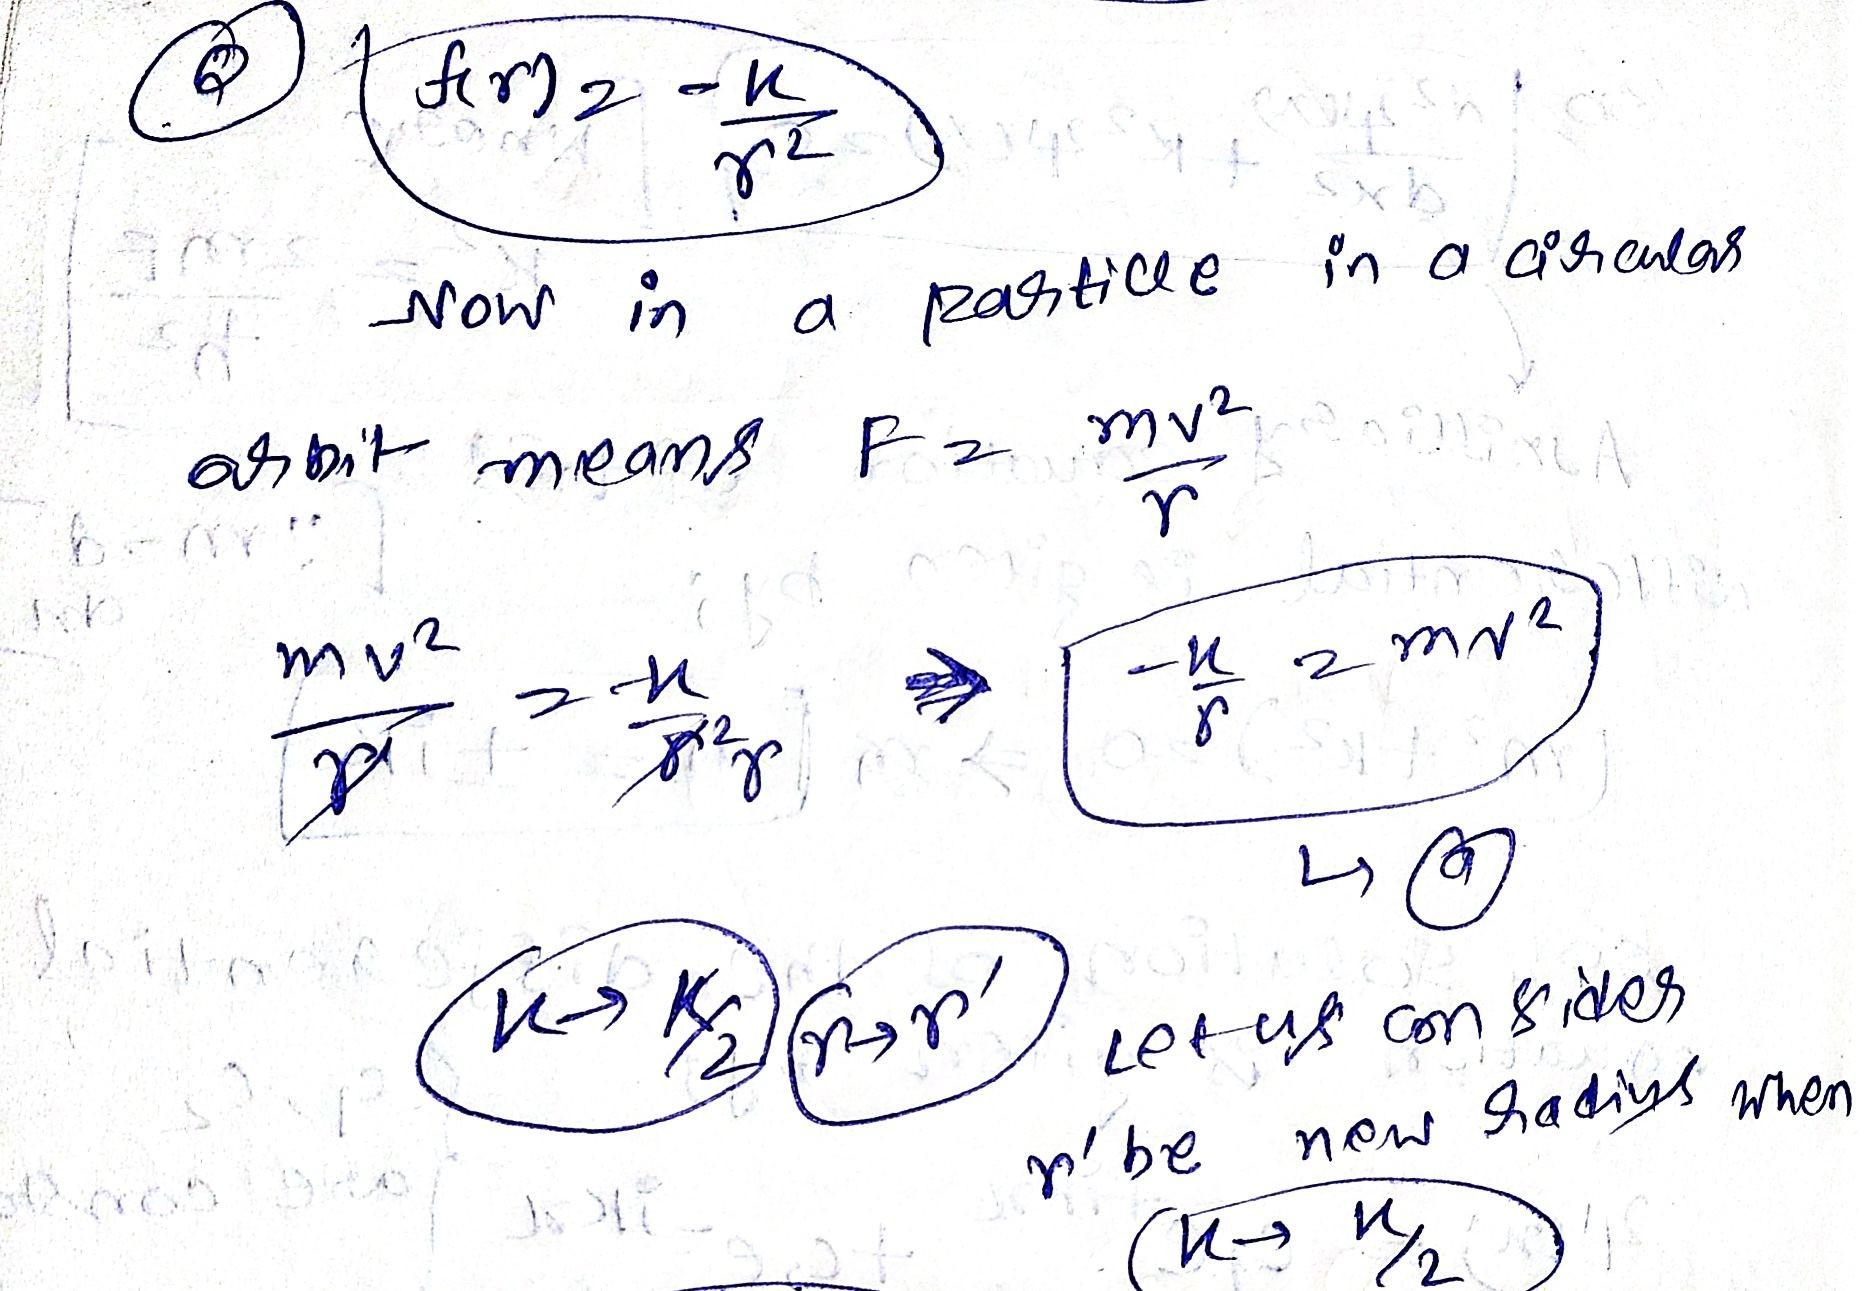 Q f(r) = -k/r²
Now in a particle in a circular
orbit means F = mv²/r
mv²/r = -k/r²r ⇒ -k/r = mv²
↳ a
k → k/2 r → r' Let us consider
r' be new radius when
(k → k/2)